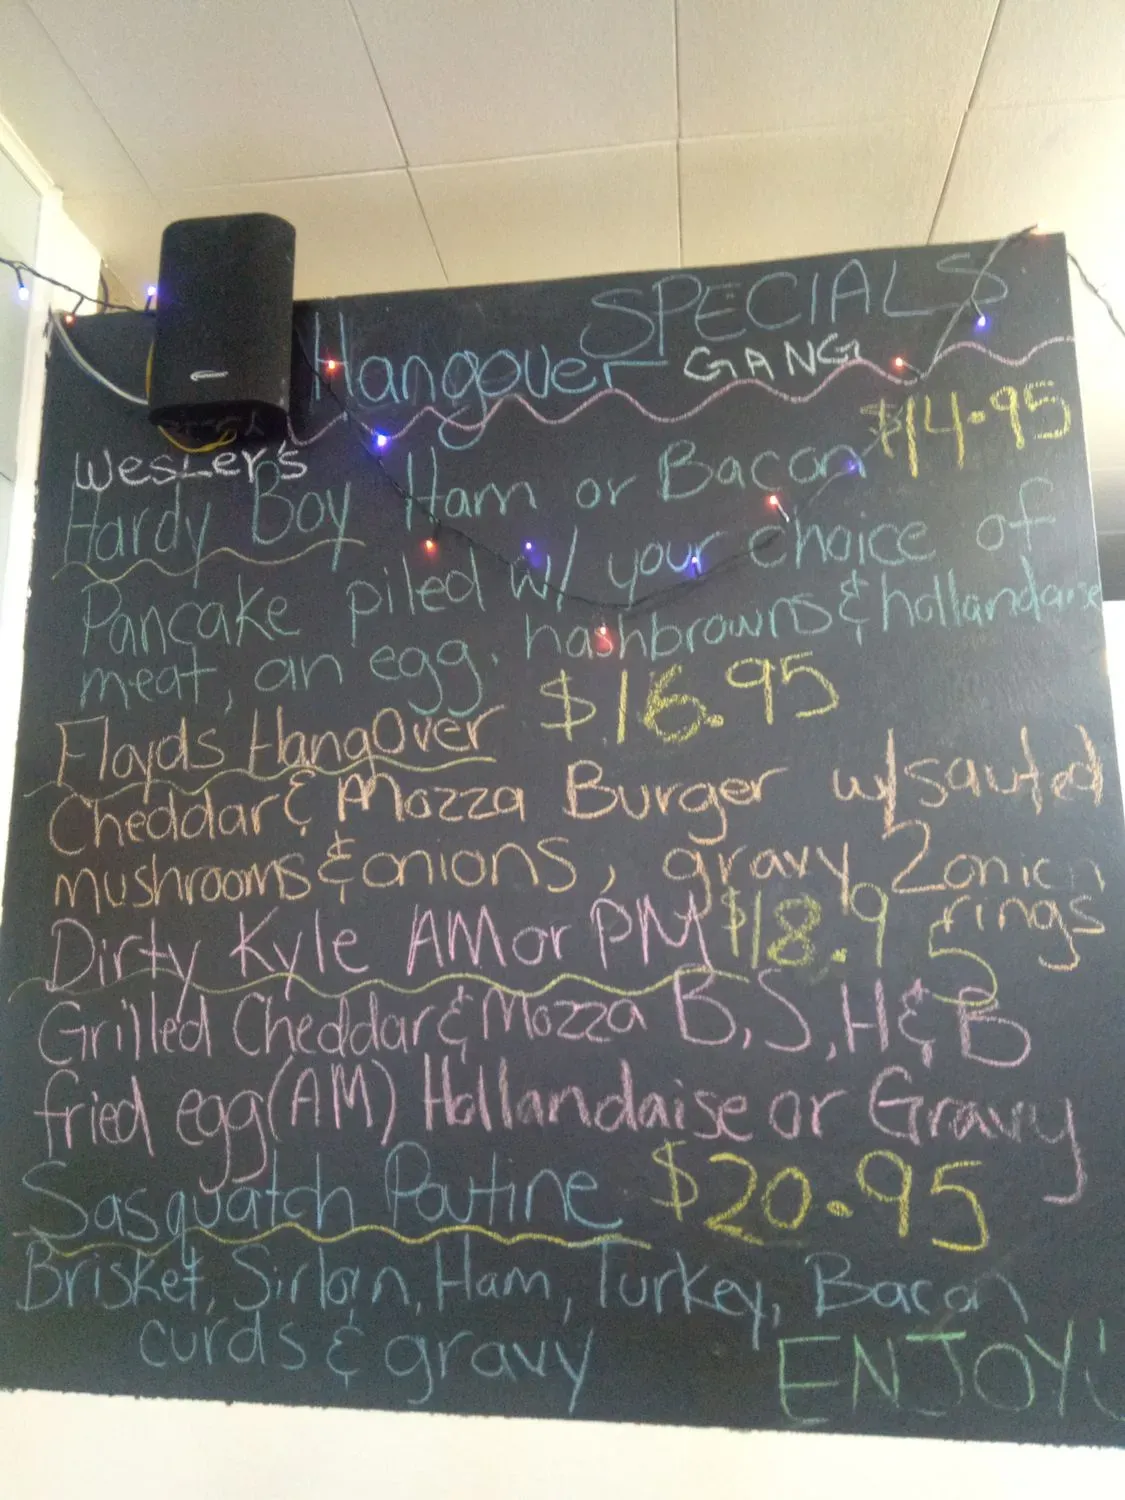 SPECIALS
Hangover GANG
$14.95
Wesler's
Hardy Boy Ham or Bacon
Pancake piled w/ your choice of
meat, an egg, hashbrowns & hollandaise
Floyds HangOver $16.95
Cheddar & Mozza Burger w/sauted
mushrooms & onions, gravy 2 onion
rings
Dirty Kyle AM or PM $18.95
Grilled Cheddar & Mozza B, S, H & B
fried egg (AM) Hollandaise or Gravy
Sasquatch Poutine $20.95
Brisket, Sirloin, Ham, Turkey, Bacon
curds & gravy
ENJOY!